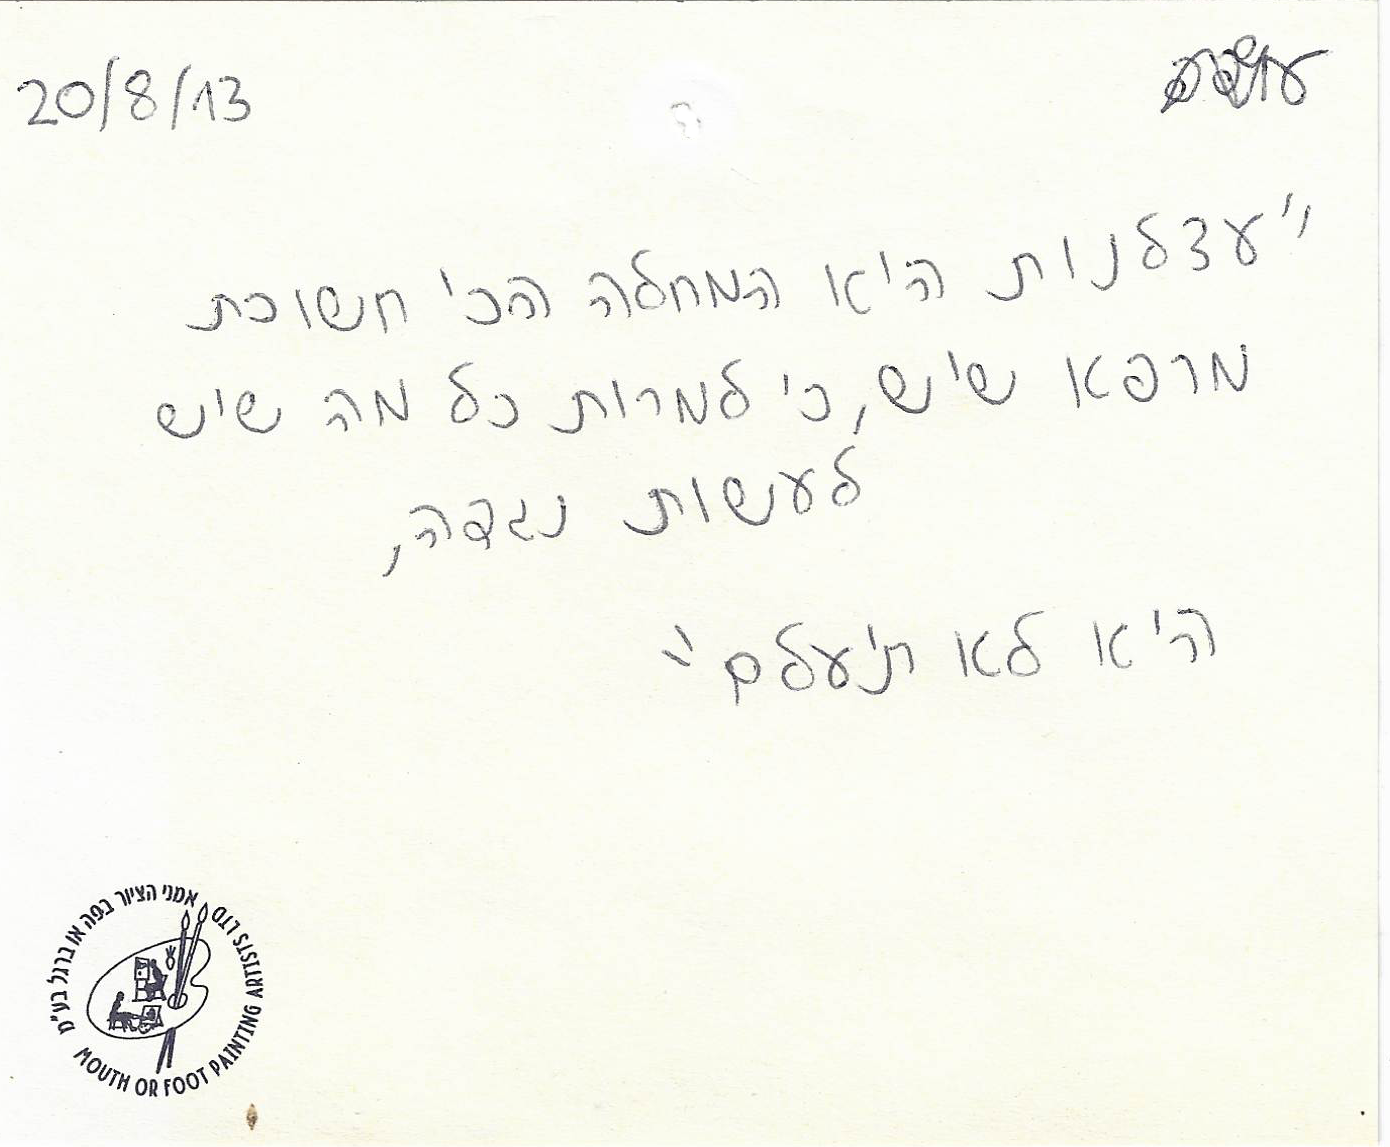 20/8/13
"עצלנות היא המחלה הכי חשוכת
מרפא שיש, כי למרות כל מה שיש
לעשות נגדה,
היא לא תיעלם"
אמני הציור בפה או ברגל בע"מ
MOUTH OR FOOT PAINTING ARTISTS LTD